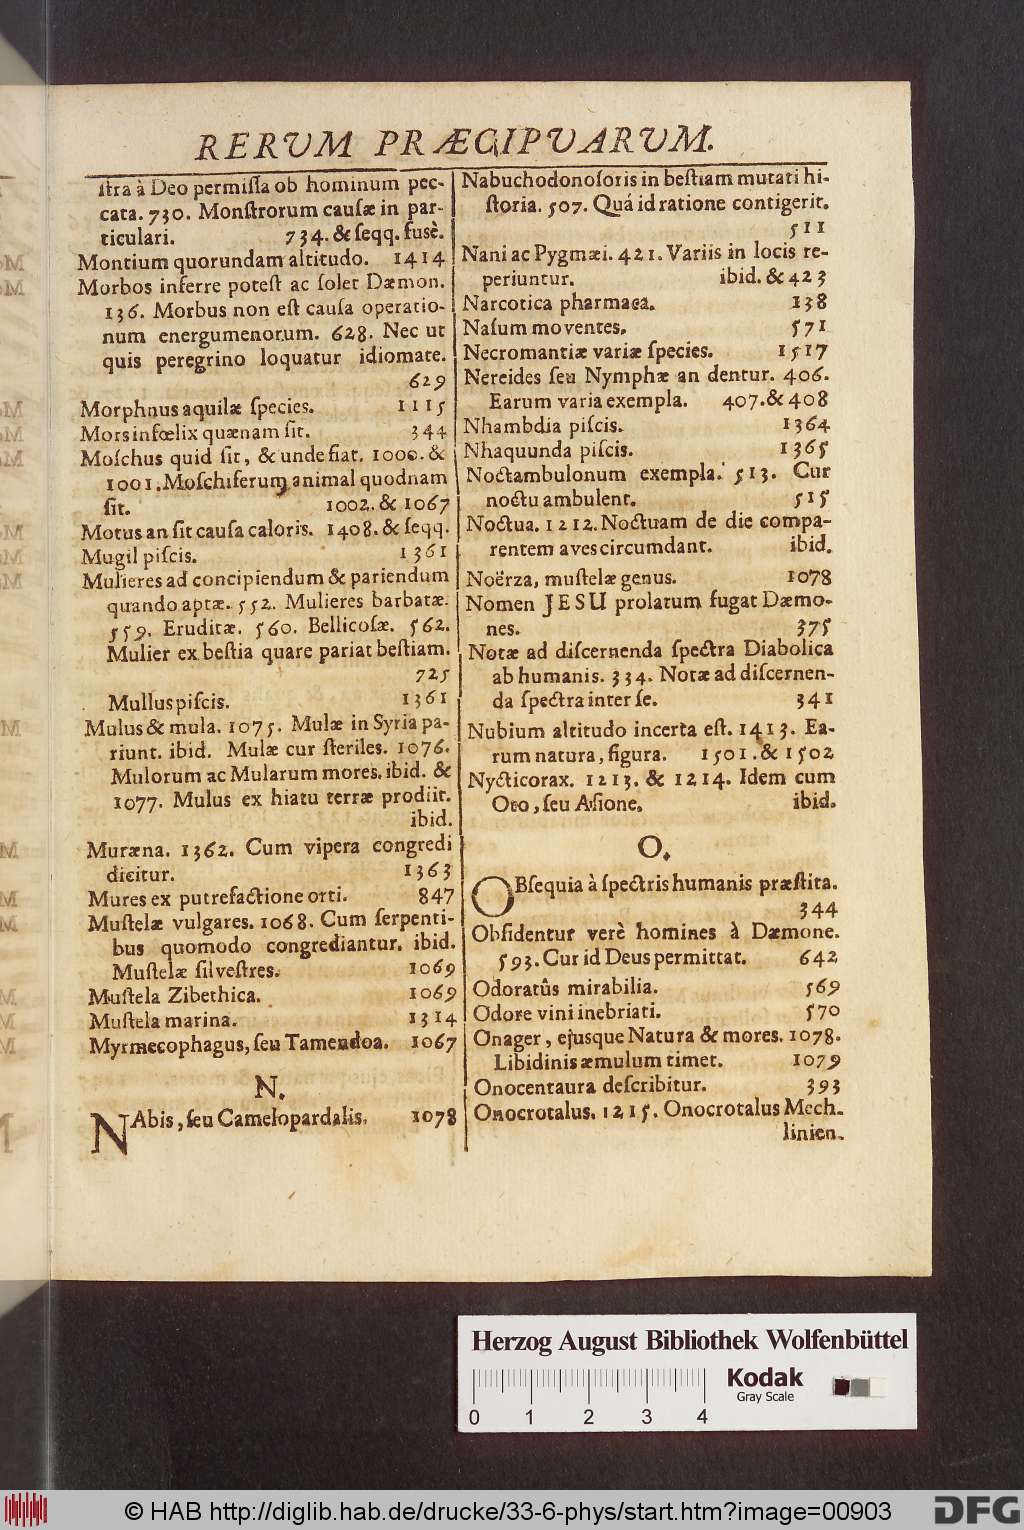 RERUM PRÆCIPVARUM.
ſtra à Deo permiſſa ob hominum pec-
cata. 730. Monſtrorum cauſæ in par-
ticulari. 734. & ſeqq. fusè.
Montium quorundam altitudo. 1414
Morbos inferre poteſt ac ſolet Dæmon.
136. Morbus non eſt cauſa operatio-
num energumenorum. 628. Nec ut
quis peregrino loquatur idiomate.
629
Morphnus aquilæ ſpecies. 1115
Mors infœlix quænam ſit. 344
Moſchus quid ſit, & unde fiat. 1000. &
1001. Moſchiferum animal quodnam
ſit. 1002. & 1067
Motus an ſit cauſa caloris. 1408. & ſeqq.
Mugil piſcis. 1361
Mulieres ad concipiendum & pariendum
quando aptæ. 552. Mulieres barbatæ.
559. Eruditæ. 560. Bellicoſæ. 562.
Mulier ex beſtia quare pariat beſtiam.
725
Mullus piſcis. 1361
Mulus & mula. 1075. Mulæ in Syria pa-
riunt. ibid. Mulæ cur ſteriles. 1076.
Mulorum ac Mularum mores. ibid. &
1077. Mulus ex hiatu terræ prodiit.
ibid.
Muræna. 1362. Cum vipera congredi
dicitur. 1363
Mures ex putrefactione orti. 847
Muſtelæ vulgares. 1068. Cum ſerpenti-
bus quomodo congrediantur. ibid.
Muſtelæ ſilveſtres. 1069
Muſtela Zibethica. 1069
Muſtela marina. 1314
Myrmecophagus, ſeu Tamendoa. 1067
N.
NAbis, ſeu Camelopardalis. 1078
Nabuchodonoſoris in beſtiam mutati hi-
ſtoria. 507. Quâ id ratione contigerit.
511
Nani ac Pygmæi. 421. Variis in locis re-
periuntur. ibid. & 423
Narcotica pharmaca. 138
Naſum moventes. 571
Necromantiæ variæ ſpecies. 1517
Nereides ſeu Nymphæ an dentur. 406.
Earum varia exempla. 407. & 408
Nhambdia piſcis. 1364
Nhaquunda piſcis. 1365
Noctambulonum exempla. 513. Cur
noctu ambulent. 515
Noctua. 1212. Noctuam de die compa-
rentem aves circumdant. ibid.
Noërza, muſtelæ genus. 1078
Nomen JESU prolatum fugat Dæmo-
nes. 375
Notæ ad diſcernenda ſpectra Diabolica
ab humanis. 334. Notæ ad diſcernen-
da ſpectra inter ſe. 341
Nubium altitudo incerta eſt. 1413. Ea-
rum natura, figura. 1501. & 1502
Nycticorax. 1213. & 1214. Idem cum
Oto, ſeu Aſione. ibid.
O.
OBſequia à ſpectris humanis præſtita.
344
Obſidentur verè homines à Dæmone.
593. Cur id Deus permittat. 642
Odoratûs mirabilia. 569
Odore vini inebriati. 570
Onager, ejusque Natura & mores. 1078.
Libidinis æmulum timet. 1079
Onocentaura deſcribitur. 393
Onocrotalus. 1215. Onocrotalus Mech-
linien-
Herzog August Bibliothek Wolfenbüttel
Kodak
Gray Scale
0 1 2 3 4
© HAB http://diglib.hab.de/drucke/33-6-phys/start.htm?image=00903
DFG